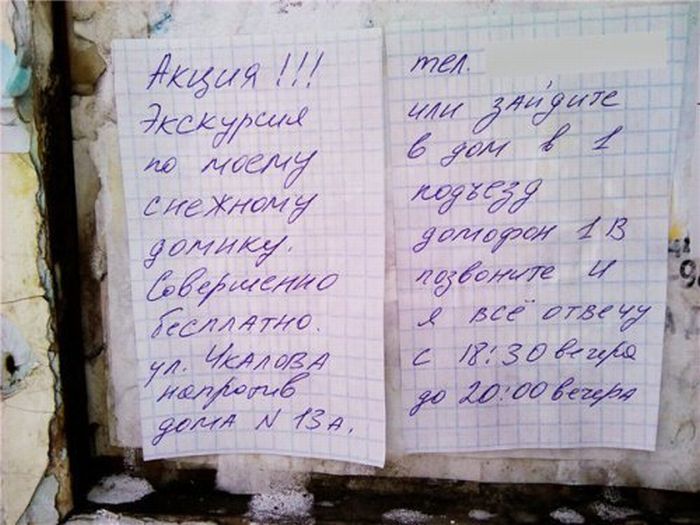 Акция!!!
Экскурсия
по моему
снежному
домику.
Совершенно
бесплатно.
ул. Чкалова
напротив
дома N 13а.
тел.
или зайдите
в дом в 1
подъезд
домофон 1В
позвоните и
я всё отвечу
с 18:30 вечера
до 20:00 вечера